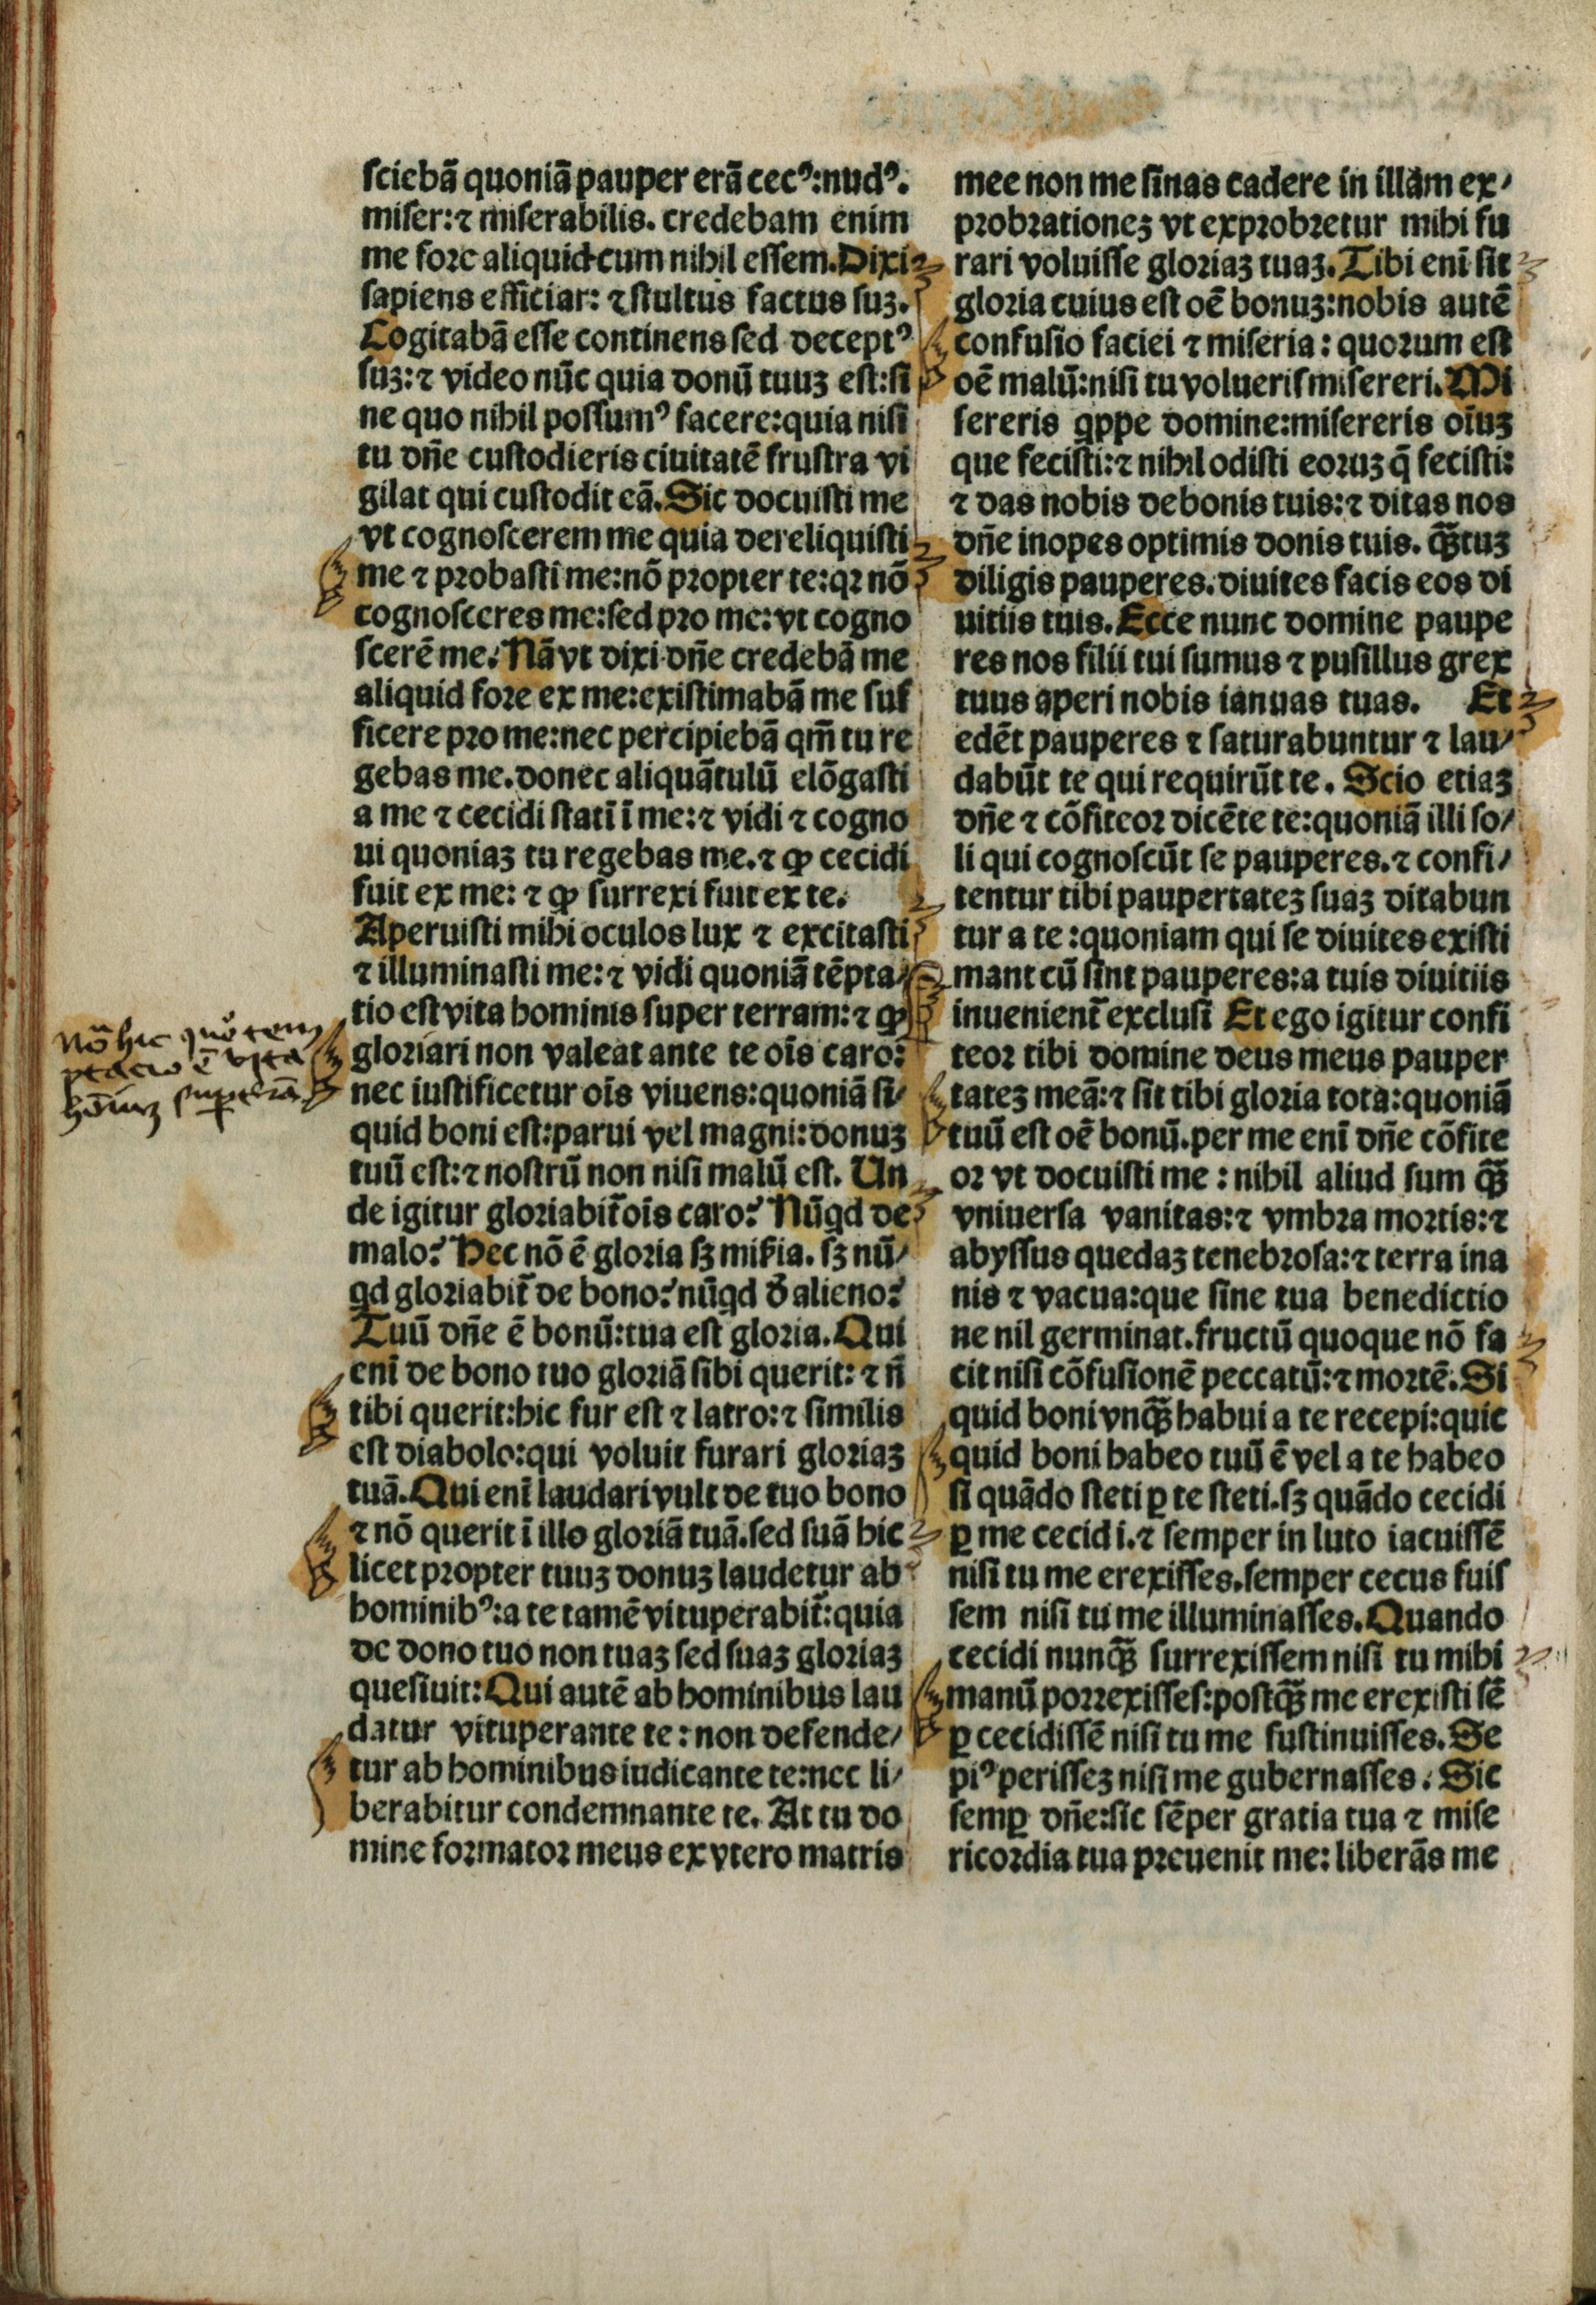 sciebã quoniã pauper erã cecꝰ:nudꝰ.
miser:⁊ miserabilis. credebam enim
me fore aliquid cum nihil essem. Dixi
sapiens efficiar: ⁊ stultus factus suꝫ.
Cogitabã esse continens sed deceptꝰ
suꝫ:⁊ video nũc quia donũ tuuꝫ est:si
ne quo nihil possumꝰ facere:quia nisi
tu dñe custodieris ciuitatẽ frustra vi
gilat qui custodit eã. Sic docuisti me
vt cognoscerem me quia dereliquisti
me ⁊ probasti me:nõ propter te:qꝛ nõ
cognosceres me:sed pro me:vt cogno
scerẽ me. Nã vt dixi dñe credebã me
aliquid fore ex me:existimabã me suf
ficere pro me:nec percipiebã qm̃ tu re
gebas me.donec aliquãtulũ elõgasti
a me ⁊ cecidi stati ̃ ĩ me:⁊ vidi ⁊ cogno
ui quoniaꝫ tu regebas me.⁊ ꝙ cecidi
fuit ex me: ⁊ ꝙ surrexi fuit ex te.
Aperuisti mihi oculos lux ⁊ excitasti
⁊ illuminasti me:⁊ vidi quoniã tẽpta⸗
tio est vita hominis super terram:⁊ ꝙ
gloriari non valeat ante te oĩs caro:
nec iustificetur oĩs viuens:quoniã si⸗
quid boni est:parui vel magni:donuꝫ
tuũ est:⁊ nostrũ non nisi malũ est. Un
de igitur gloriabit᷑ oĩs caro? Nũqd de
malo? Hec nõ ẽ gloria sꝫ mis̃ia. sꝫ nũ⸗
qd gloriabit᷑ de bono? nũqd ð alieno?
Tuũ dñe ẽ bonũ:tua est gloria. Qui
eni ̃ de bono tuo gloriã sibi querit: ⁊ ñ
tibi querit:hic fur est ⁊ latro:⁊ similis
est diabolo:qui voluit furari gloriaꝫ
tuã. Qui eni ̃ laudari vult de tuo bono
⁊ nõ querit ĩ illo gloriã tuã.sed suã hic
licet propter tuuꝫ donuꝫ laudetur ab
hominibꝰ:a te tamẽ vituperabit᷑:quia
de dono tuo non tuaꝫ sed suaꝫ gloriaꝫ
quesiuit: Qui autẽ ab hominibus lau
datur vituperante te: non defende⸗
tur ab hominibus iudicante te:nec li⸗
berabitur condemnante te. At tu do
mine formator meus ex vtero matris
mee non me sinas cadere in illam ex⸗
probrationeꝫ vt exprobretur mihi fu
rari voluisse gloriaꝫ tuaꝫ. Tibi eni ̃ sit
gloria cuius est oẽ bonuꝫ:nobis autẽ
confusio faciei ⁊ miseria: quorum est
oẽ malũ:nisi tu volueris misereri. Mi
sereris qppe domine:misereris oĩuꝫ
que fecisti:⁊ nihil odisti eoruꝫ q̃ fecisti:
⁊ das nobis de bonis tuis:⁊ ditas nos
dñe inopes optimis donis tuis. qꝫ̃tuꝫ
diligis pauperes. diuites facis eos di
uitiis tuis. Ecce nunc domine paupe
res nos filii tui sumus ⁊ pusillus grex
tuus aperi nobis ianuas tuas. Et
edẽt pauperes ⁊ saturabuntur ⁊ lau⸗
dabũt te qui requirũt te. Scio etiaꝫ
dñe ⁊ cõfiteor dicẽte te:quoniã illi so⸗
li qui cognoscũt se pauperes.⁊ confi⸗
tentur tibi paupertateꝫ suaꝫ ditabun
tur a te:quoniam qui se diuites existi
mant cũ sint pauperes:a tuis diuitiis
inuenient᷑ exclusi Et ego igitur confi
teor tibi domine deus meus pauper
tateꝫ meã:⁊ sit tibi gloria tota:quoniã
tuũ est oẽ bonũ.per me eni ̃ dñe cõfite
or vt docuisti me: nihil aliud sum qꝫ̃
vniuersa vanitas:⁊ vmbra mortis:⁊
abyssus quedaꝫ tenebrosa:⁊ terra ina
nis ⁊ vacua:que sine tua benedictio
ne nil germinat.fructũ quoque nõ fa
cit nisi cõfusionẽ peccatũ:⁊ mortẽ. Si
quid boni vnqꝫ̃ habui a te recepi:quic
quid boni habeo tuũ ẽ vel a te habeo
si quãdo steti ꝑ te steti.sꝫ quãdo cecidi
ꝑ me cecidi.⁊ semper in luto iacuissẽ
nisi tu me erexisses.semper cecus fuis
sem nisi tu me illuminasses. Quando
cecidi nunqꝫ̃ surrexissem nisi tu mihi
manũ porrexisses:postqꝫ̃ me erexisti sẽ
ꝑ cecidissẽ nisi tu me sustinuisses. Se
piꝰ perisseꝫ nisi me gubernasses. Sic
semꝑ dñe:sic sẽper gratia tua ⁊ mise
ricordia tua preuenit me: liberãs me
Nõ hic quõ tem
ptacio ẽ vita
hõiuꝫ suꝑ terã